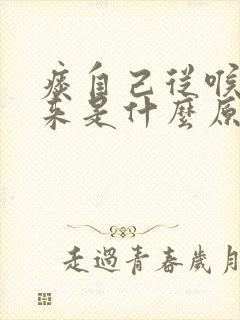 痰自己從喉
來是什麼原
走過青春歲月